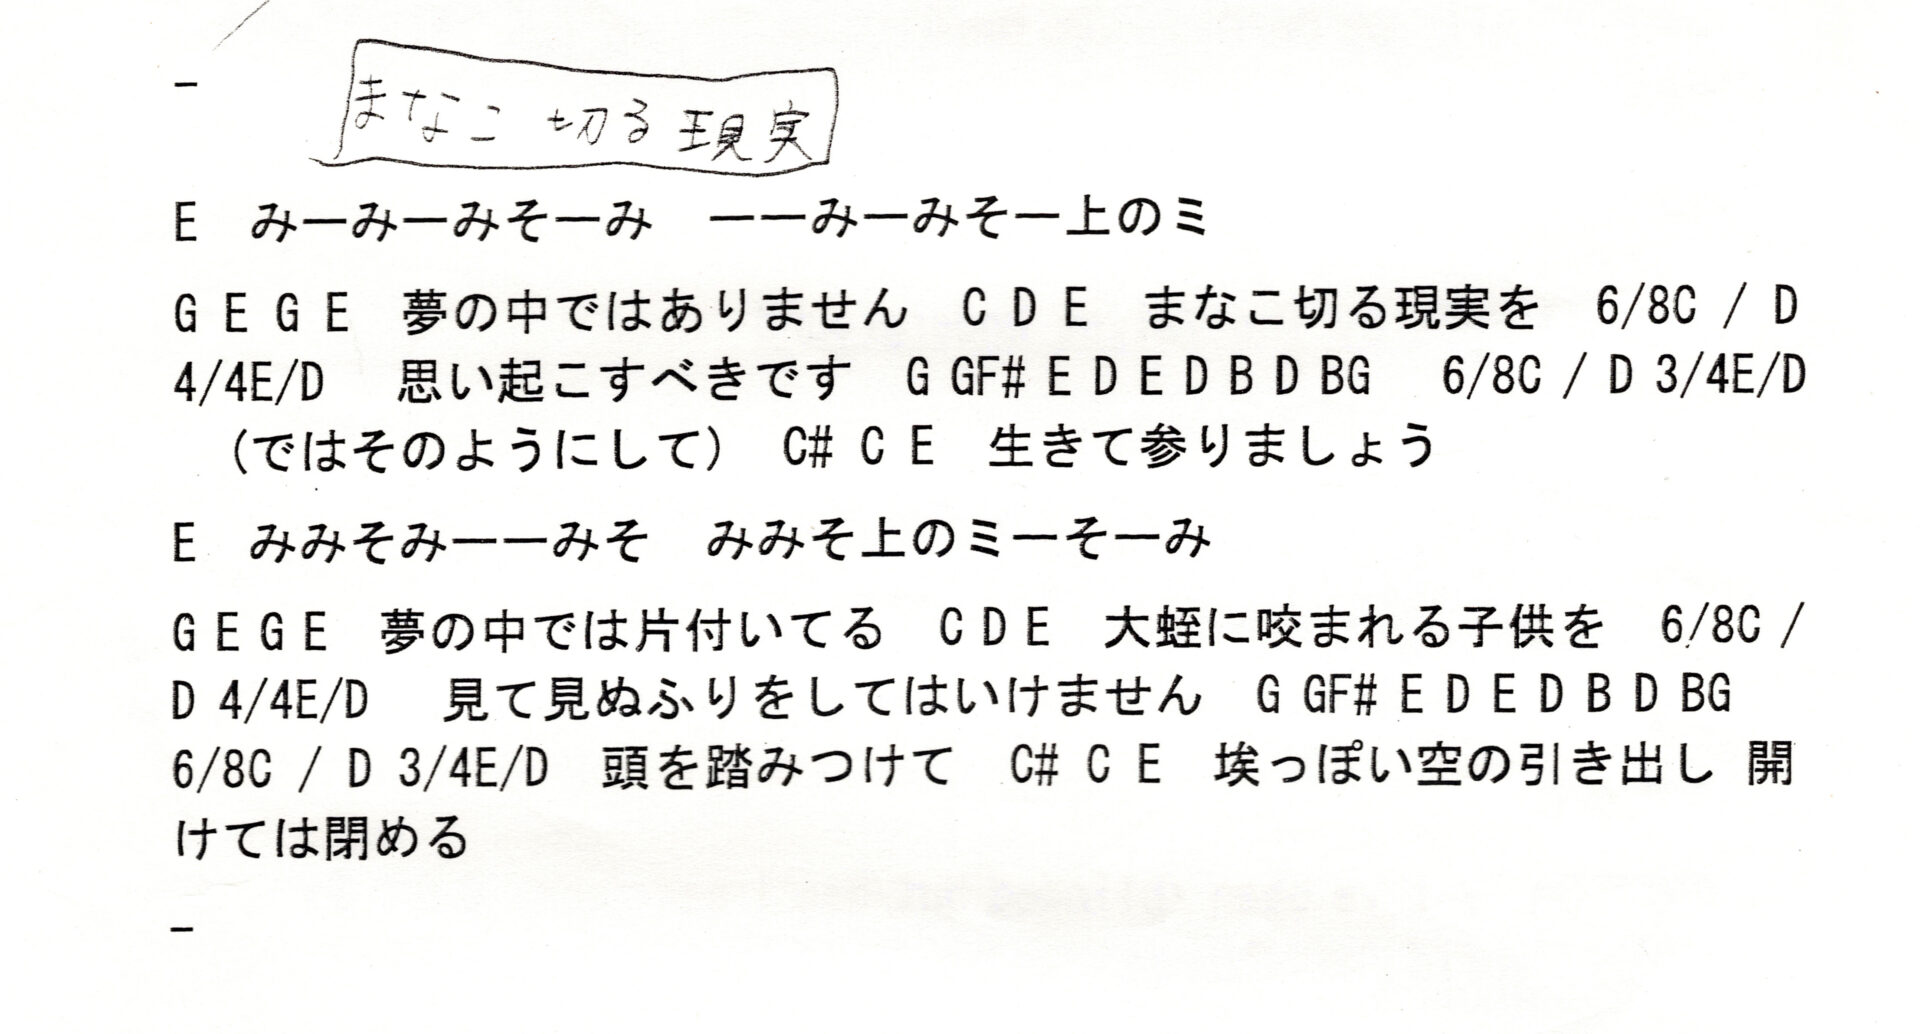 –
まなこ 切る 現実
E　みーみーみそーみ　ーーみーみそー上のミ
G E G E　夢の中ではありません　C D E　まなこ切る現実を　6/8C / D
4/4E/D　思い起こすべきです　G GF# E D E D B D BG　6/8C / D 3/4E/D
（ではそのようにして）　C# C E　生きて参りましょう
E　みみそみーーみそ　みみそ上のミーそーみ
G E G E　夢の中では片付いてる　C D E　大蛭に咬まれる子供を　6/8C /
D 4/4E/D　見て見ぬふりをしてはいけません　G GF# E D E D B D BG
6/8C / D 3/4E/D　頭を踏みつけて　C# C E　埃っぽい空の引き出し 開
けては閉める
–